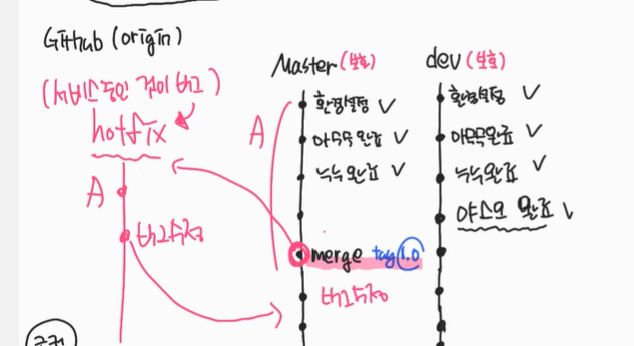 Github (origin)
(서비스중인 것이 버그)
hotfix
A
버그수정
Master (보호)
A
환경설정 ✓
아무무 완료 ✓
누누 완료 ✓
merge tag 1.0
버그수정
dev (보호)
환경설정 ✓
아무무완료 ✓
누누완료 ✓
야스오 완료 ✓